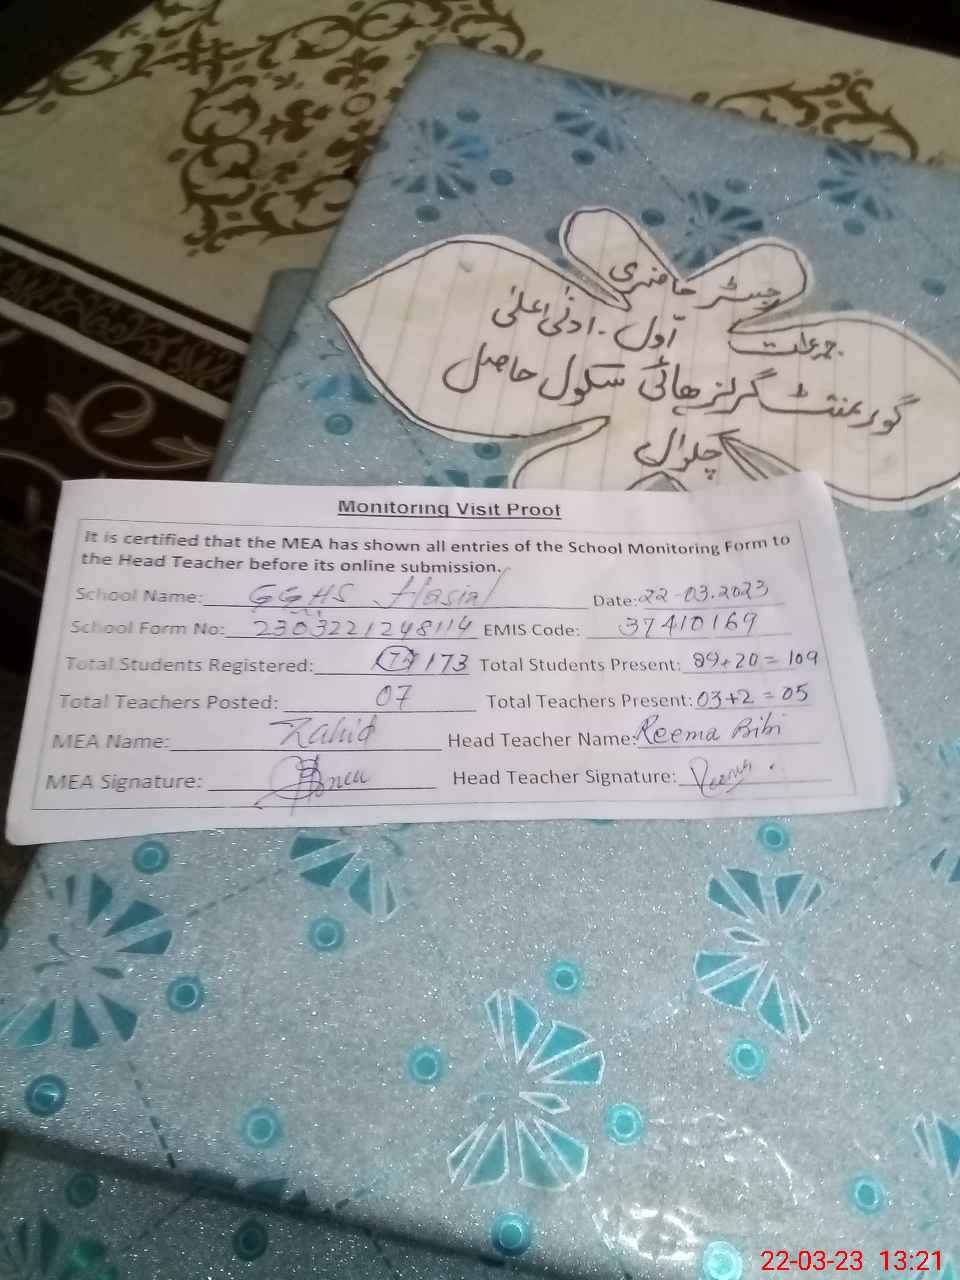 رجسٹر حاضری
جماعت اوّل - ادنیٰ اعلیٰ
گورنمنٹ گرلز ہائی سکول حاصل
چکرال
Monitoring Visit Proof
It is certified that the MEA has shown all entries of the School Monitoring Form to
the Head Teacher before its online submission.
School Name: GGHS Hasial Date: 22-03.2023
School Form No: 2303221248114 EMIS Code: 37410169
Total Students Registered: 173 Total Students Present: 89+20=109
Total Teachers Posted: 07 Total Teachers Present: 03+2=05
MEA Name: Zahid Head Teacher Name: Reema Bibi
MEA Signature: Head Teacher Signature:
22-03-23 13:21